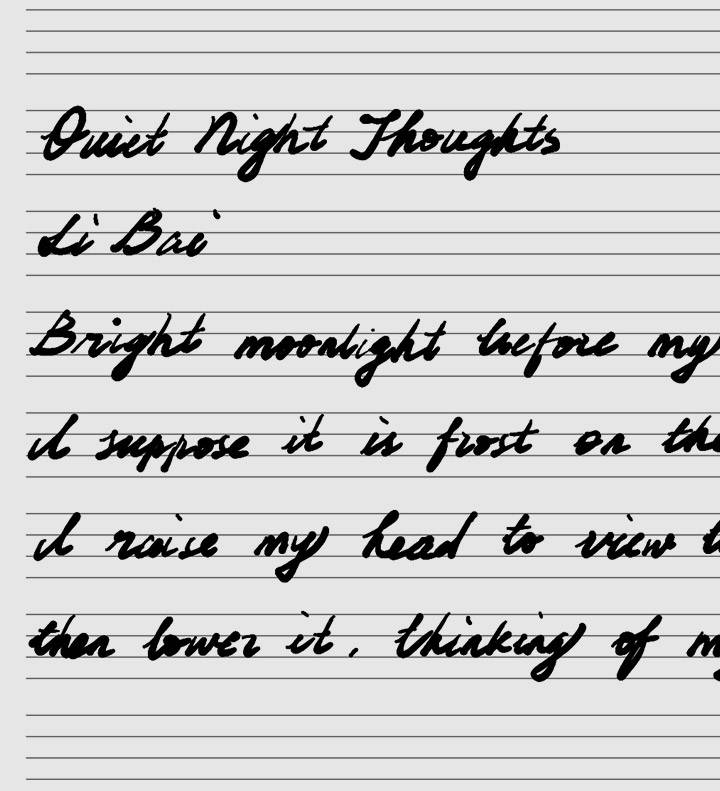 Quiet Night Thoughts
Li Bai
Bright moonlight before my
I suppose it is frost on the
I raise my head to view
then lower it, thinking of